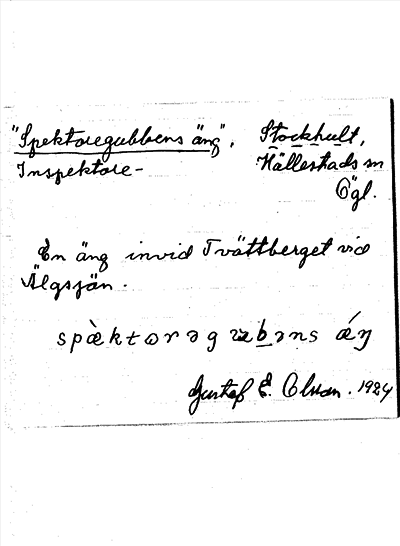 "Spektoregubbens äng", Stockhult,
Inspektore- Hällestads sn
Ögl.
En äng invid Tvättberget vid
Älgsjön.
spὰktɷrəg ʉbəns ǽŋ
Gustaf E. Olsson. 1924